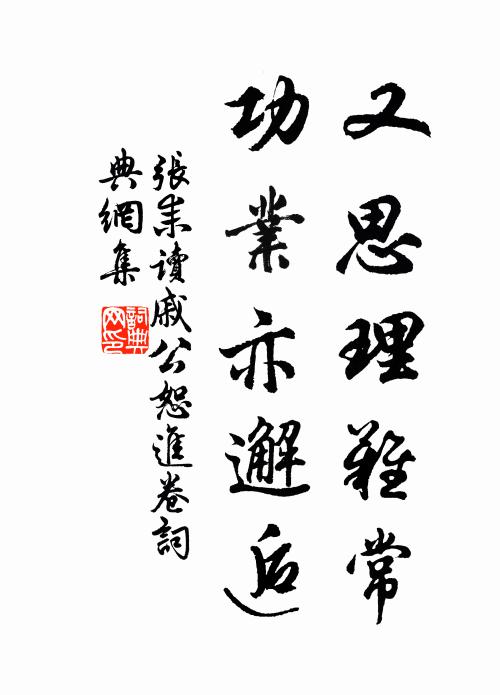 又思理難常
功業亦邂逅
張耒讀戚公恕進卷詞
典網集
詞典网印